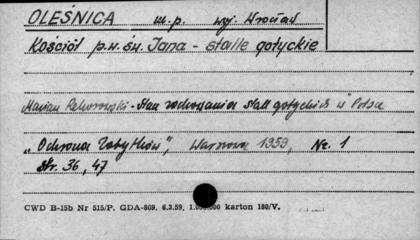 OLEŚNICA m.p. woj. Wrocław
Kościół p.w. św. Jana - stalle gotyckie
Marian Kornecki - Stan zachowania stall gotyckich w Polsce
"Ochrona Zabytków", Warszawa 1959, Nr. 1
str. 36, 47
CWD B-15b Nr 515/P. GDA-809. 6.3.59, 1.000.000 karton 180/V.